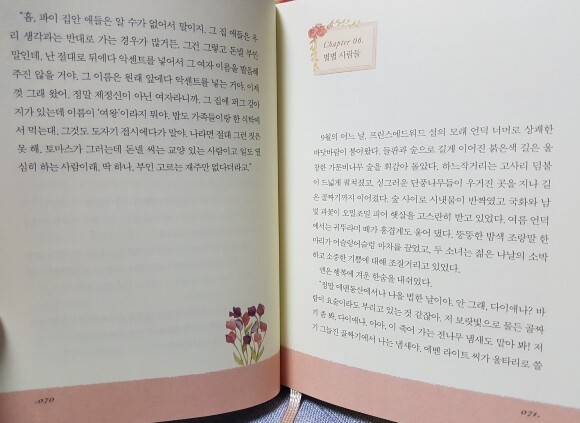 "흠, 파이 집안 애들은 알 수가 없어서 말이지. 그 집 애들은 우
리 생각과는 반대로 가는 경우가 많거든. 그건 그렇고 돈넬 부인
말인데, 난 절대로 뒤에다 악센트를 넣어서 그 여자 이름을 발음해
주진 않을 거야. 그 이름은 원래 앞에다 악센트를 넣는 거야. 이제
껏 그래 왔어. 정말 제정신이 아닌 여자라니까. 그 집에 퍼그 강아
지가 있는데 이름이 '여왕'이라지 뭐야. 밥도 가족들이랑 한 식탁에
서 먹는대. 그것도 도자기 접시에다가 말야. 나라면 절대 그런 짓은
못 해. 토마스가 그러는데 돈넬 씨는 교양 있는 사람이고 일도 열
심히 하는 사람이래. 딱 하나, 부인 고르는 재주만 없다더라고."
070
Chapter 06.
별별 사람들
9월의 어느 날, 프린스에드워드 섬의 모래 언덕 너머로 상쾌한
바닷바람이 불어왔다. 들판과 숲으로 길게 이어진 붉은색 길은 울
창한 가문비나무 숲을 휘감아 돌았다. 하느작거리는 고사리 덤불
이 드넓게 펼쳐졌고, 싱그러운 단풍나무들이 우거진 곳을 지나 길
은 골짜기까지 이어졌다. 숲 사이로 시냇물이 반짝였고 국화와 남
빛 과꽃이 오밀조밀 피어 햇살을 고스란히 받고 있었다. 여름 언덕
에서는 귀뚜라미 떼가 흥겹게도 울어 댔다. 뚱뚱한 밤색 조랑말 한
마리가 어슬렁어슬렁 마차를 끌었고, 두 소녀는 젊은 나날의 소박
하고 소중한 기쁨에 대해 조잘거리고 있었다.
앤은 행복에 겨운 한숨을 내쉬었다.
"정말 에덴동산에서나 나올 법한 날이야. 안 그래, 다이애나? 바
람이 요술이라도 부리고 있는 것 같잖아. 저 보랏빛으로 물든 골짜
기 좀 봐, 다이애나. 아아, 이 죽어 가는 전나무 냄새도 맡아 봐! 저
기 그늘진 골짜기에서 나는 냄새야. 에벤 라이트 씨가 울타리로 쓸
071